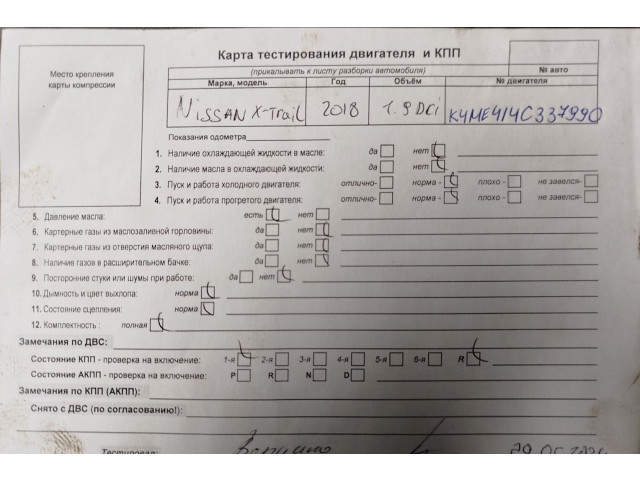 Карта тестирования двигателя и КПП
(прикалывать к листу разборки автомобиля)
№ авто
Место крепления
карты компрессии
Марка, модель Год Объём № двигателя
Nissan X-Trail 2018 1.9 Dci K4ME414C337990
Показания одометра
1. Наличие охлаждающей жидкости в масле: да нет
2. Наличие масла в охлаждающей жидкости: да нет
3. Пуск и работа холодного двигателя: отлично- норма - плохо - не завелся-
4. Пуск и работа прогретого двигателя: отлично- норма - плохо - не завелся-
5. Давление масла: есть нет
6. Картерные газы из маслозаливной горловины: да нет
7. Картерные газы из отверствия масляного щупа: да нет
8. Наличие газов в расширительном бачке: да нет
9. Посторонние стуки или шумы при работе: да нет
10. Дымность и цвет выхлопа: норма
11. Состояние сцепления: норма
12. Комплектность : полная
Замечания по ДВС:
Состояние КПП - проверка на включение: 1-я 2-я 3-я 4-я 5-я 6-я R
Состояние АКПП - проверка на включение: P R N D
Замечания по КПП (АКПП):
Снято с ДВС (по согласованию!):
Тестировал: